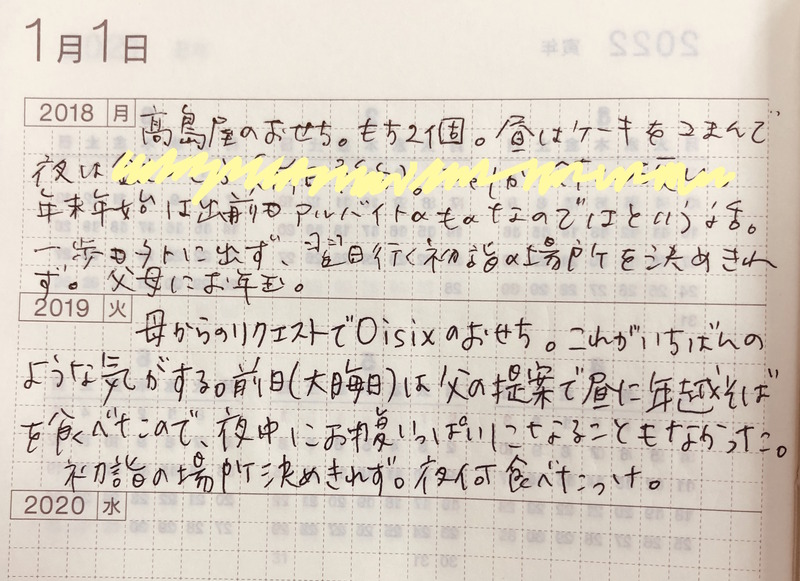 1月1日
2018 月 高島屋のおせち。もち2個。昼はケーキをつまんで
夜は
年末年始は出前もアルバイトのものなのでほという話。
一歩も外に出ず、翌日行く初詣の場所を決めきれ
ず。父母にお年玉。
2019 火 母からのリクエストでOisixのおせち。これがいちばんの
ような気がする。前日(大晦日)は父の提案で昼に年越そば
を食べたので、夜中にお腹いっぱいになることもなかった。
初詣の場所決めきれず。夜何食べたっけ。
2020 水